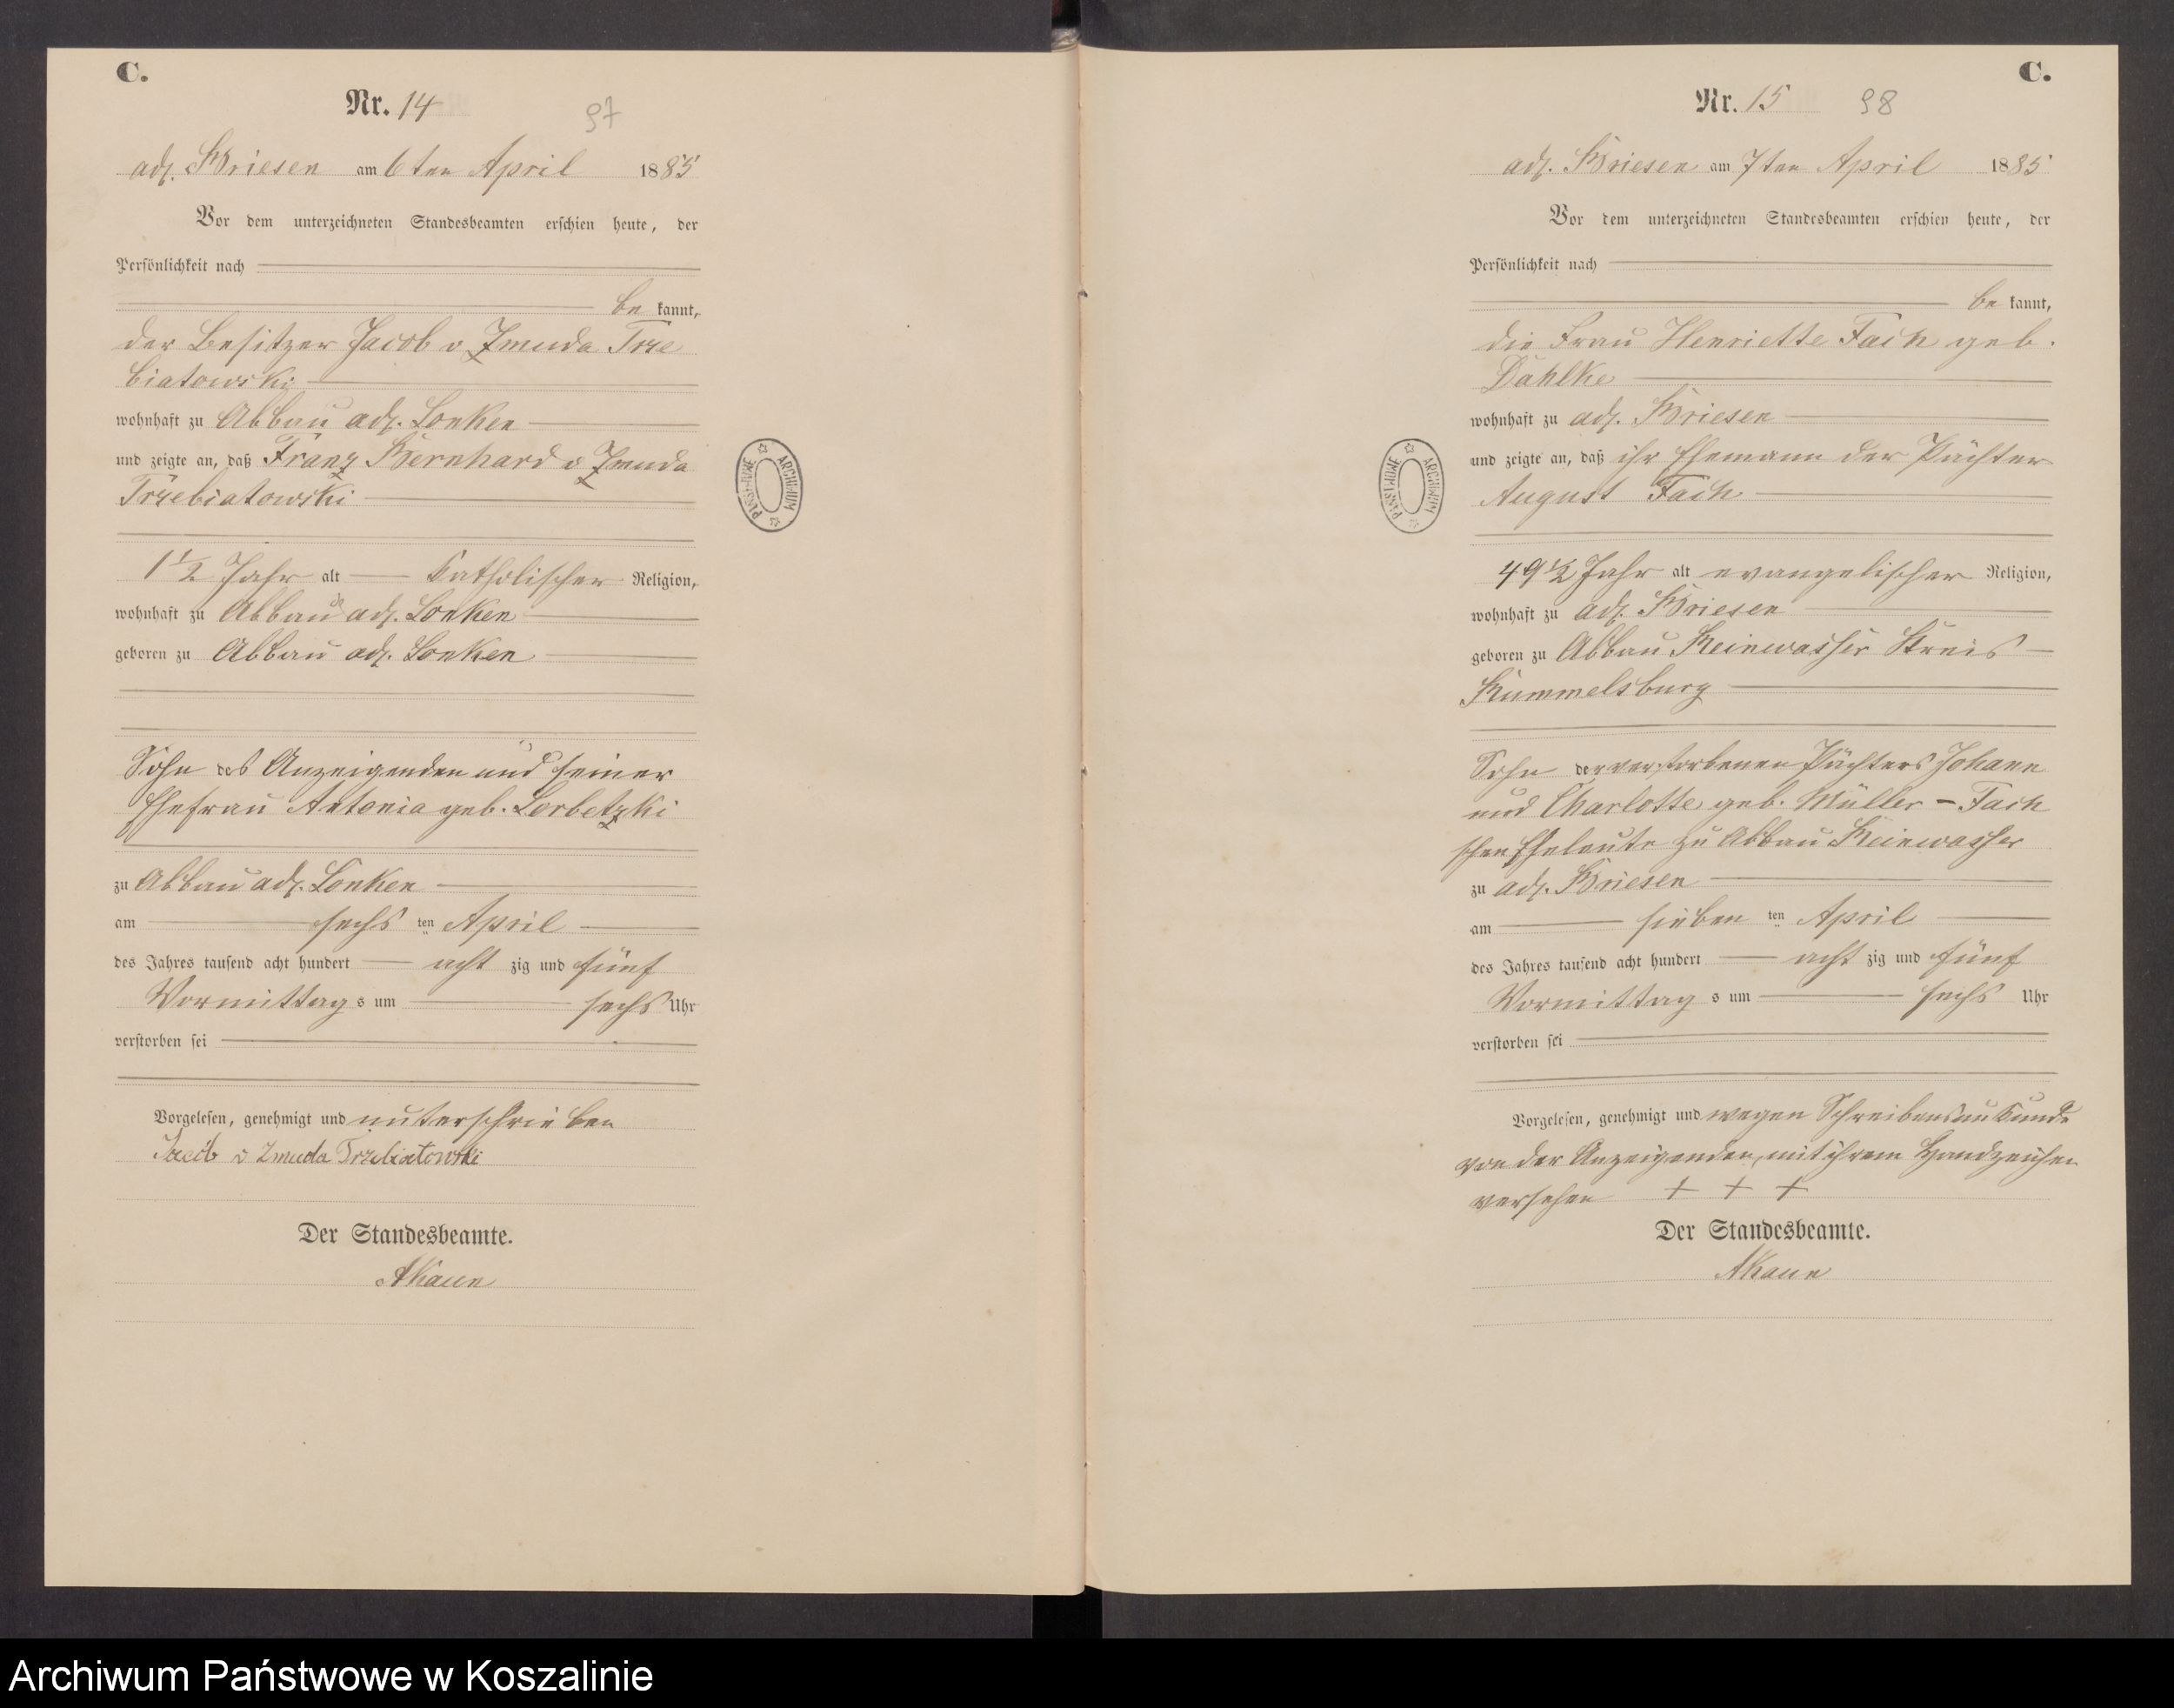 C.
Nr. 14
97
adl. Briesen am 6ten April 1885
Vor dem unterzeichneten Standesbeamten erschien heute, der
Persönlichkeit nach
be kannt,
der Besitzer Jacob v Zmuda Trze
biatowski
wohnhaft zu Abbau adl. Lonken
und zeigte an, daß Franz Bernhard v Zmuda
Trzebiatowski
1 1/2 Jahr alt katholischer Religion,
wohnhaft zu Abbau adl. Lonken
geboren zu Abbau adl. Lonken
Sohn des Anzeigenden und seiner
Ehefrau Antonia geb. Lorbetzki
zu Abbau adl. Lonken
am sechs ten April
des Jahres tausend acht hundert acht zig und fünf
Vormittag s um sechs Uhr
verstorben sei
Vorgelesen, genehmigt und unterschrieben
Jacob v Zmuda Trzebiatowski
Der Standesbeamte.
ARCHIWUM PAŃSTWOWE
C.
Nr. 15
98
adl. Briesen am 7ten April 1885
Vor dem unterzeichneten Standesbeamten erschien heute, der
Persönlichkeit nach
be kannt,
die Frau Henriette Fach geb.
Dahlke
wohnhaft zu adl. Briesen
und zeigte an, daß ihr Ehemann der Pächter
August Fach
49 1/2 Jahr alt evangelischer Religion,
wohnhaft zu adl. Briesen
geboren zu Abbau Reinwasser Kreis
Rummelsburg
Sohn der verstorbenen Pächters Johann
und Charlotte geb. Müller - Fach
schen Eheleute zu Abbau Reinwasser
zu adl. Briesen
am sieben ten April
des Jahres tausend acht hundert acht zig und fünf
Vormittag s um sechs Uhr
verstorben sei
Vorgelesen, genehmigt und wegen Schreibensunkunde
von der Anzeigenden, mit ihrem Handzeichen
versehen + + +
Der Standesbeamte.
ARCHIWUM PAŃSTWOWE
Archiwum Państwowe w Koszalinie